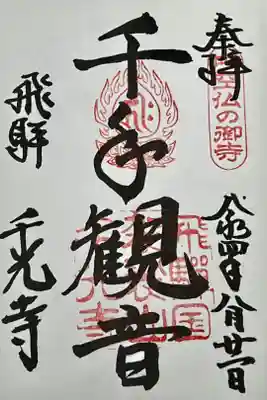 奉拝
円空仏の御寺
令和四年八月廿一日
千手観音
飛騨国
飛騨
千光寺